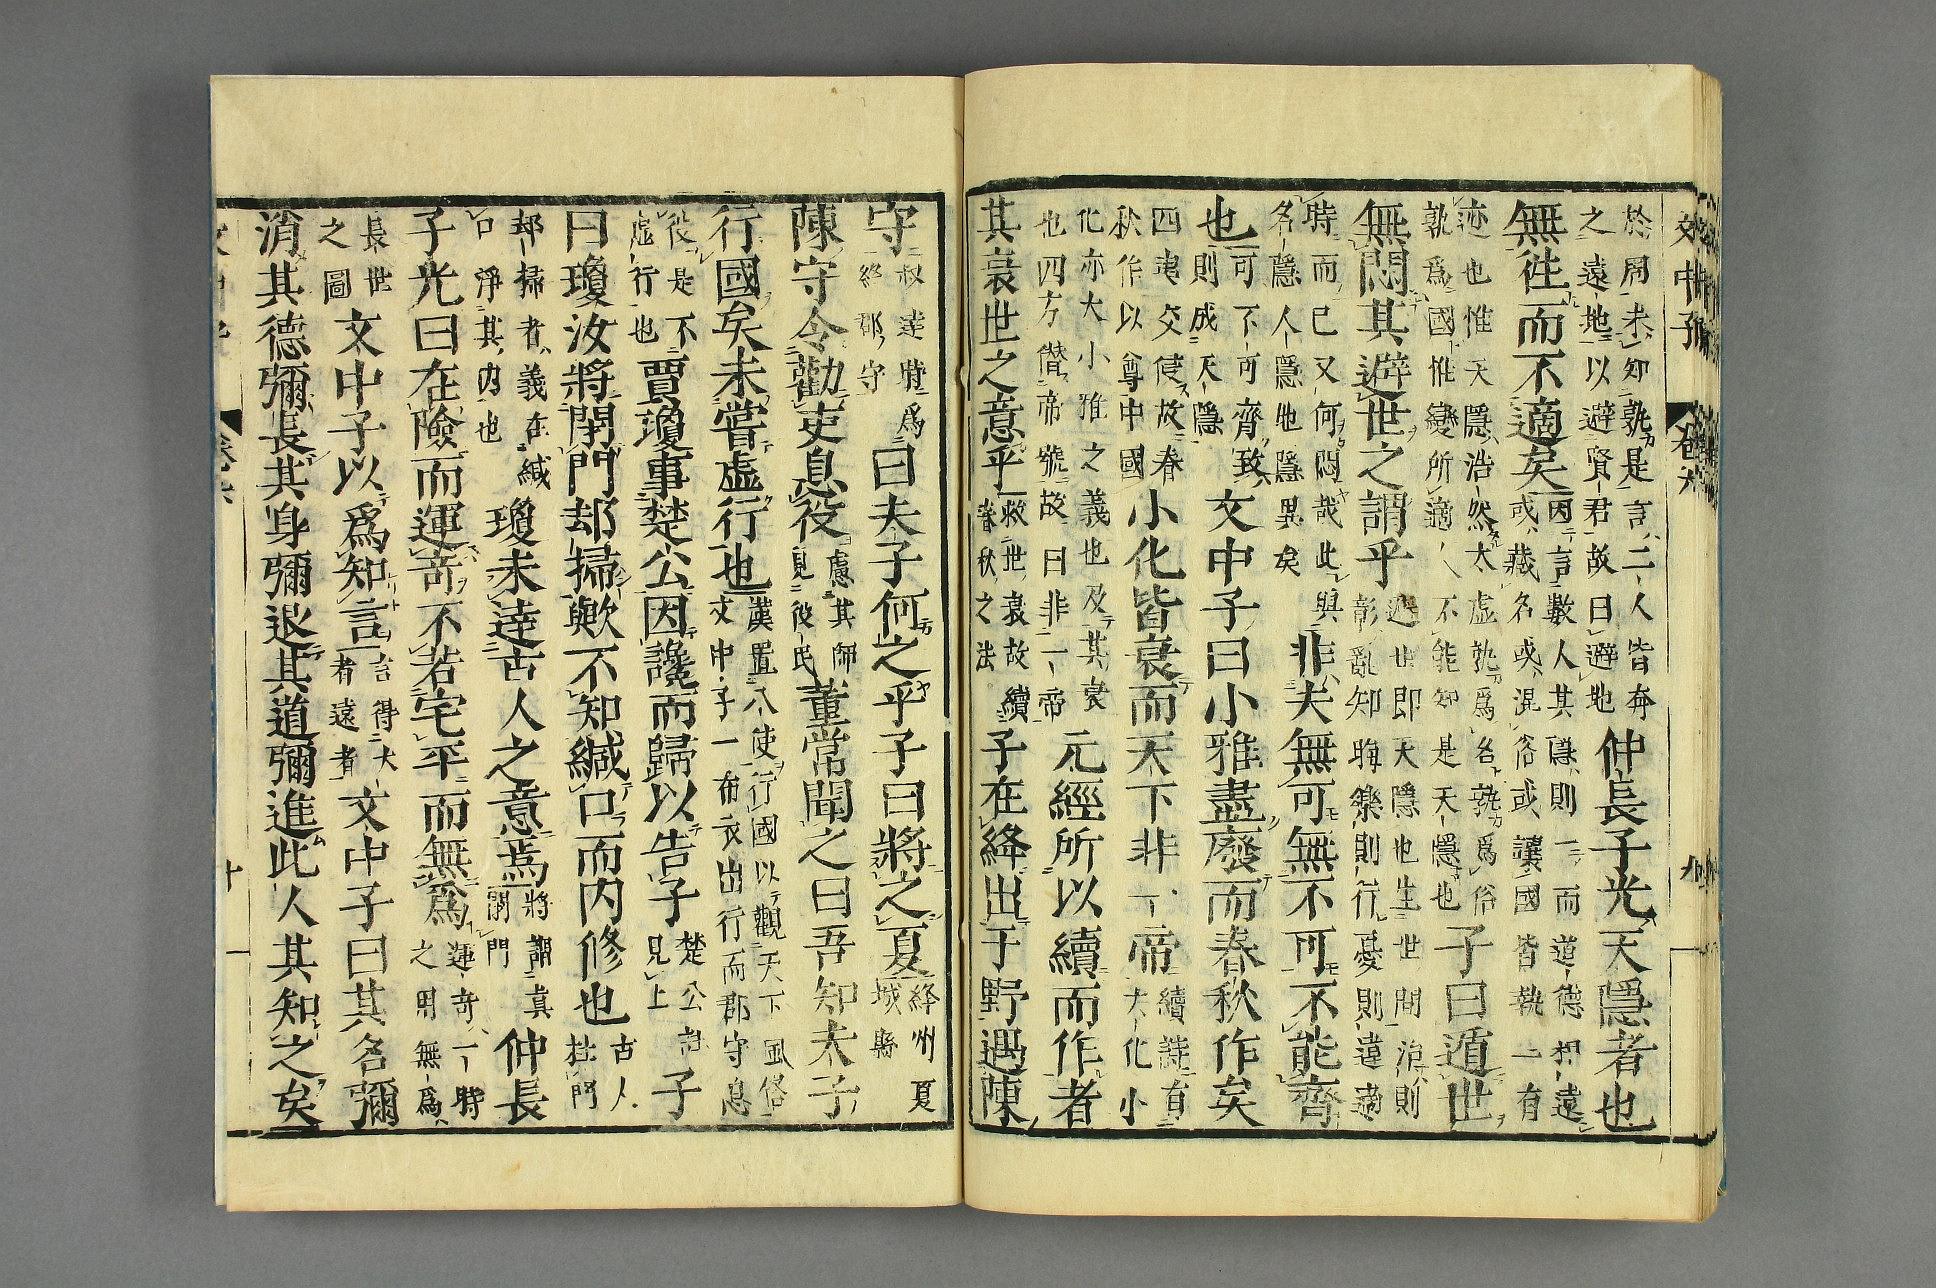 文中子 卷六 九
於周未知孰是言二人皆奔之遠地以避賢君故曰避地仲長子光天隱者也
無徃而不適矣因言數人其隱則一而道德相遠或藏名或混俗或讓國皆執一有
迹也惟天隱浩然太虛孰爲名孰爲俗孰爲國惟變所適人不能知是天隱也子曰遁世
無悶其避世之謂乎避世即天隱也生世間治則彰亂知晦樂則行憂則違適
時而已又何悶哉此與名隱人隱地隱異矣非夫無可無不可不能齊
也可不可齊致則成天隱文中子曰小雅盡廢而春秋作矣
四夷交使故春秋作以尊中國小化皆衰而天下非一帝續詩有大化小
化亦大小雅之義也及其衰也四方僭帝號故曰非一帝元經所以續而作者
其衰世之意乎救世衰故續春秋之法子在絳出于野遇陳
守叔達時爲絳郡守曰夫子何之乎子曰將之夏絳州夏城縣
陳守令勸吏息役慮其師見役民董常聞之曰吾知夫子
行國矣未嘗虛行也漢置八使行國以觀天下風俗文中子一布衣出行而郡守息
役是不虛行也賈瓊事楚公因讒而歸以告子楚公註見上子
曰瓊汝將閉門却掃歟不知緘口而内修也古人杜門
却掃者義在緘口淨其内也瓊未達古人之意焉將謂真閉門仲長
子光曰在險而運奇不若宅平而無爲運奇一時之用無爲
長世之圖文中子以爲知言言得大者遠者文中子曰其名彌
消其德彌長其身彌退其道彌進此人其知之矣
十